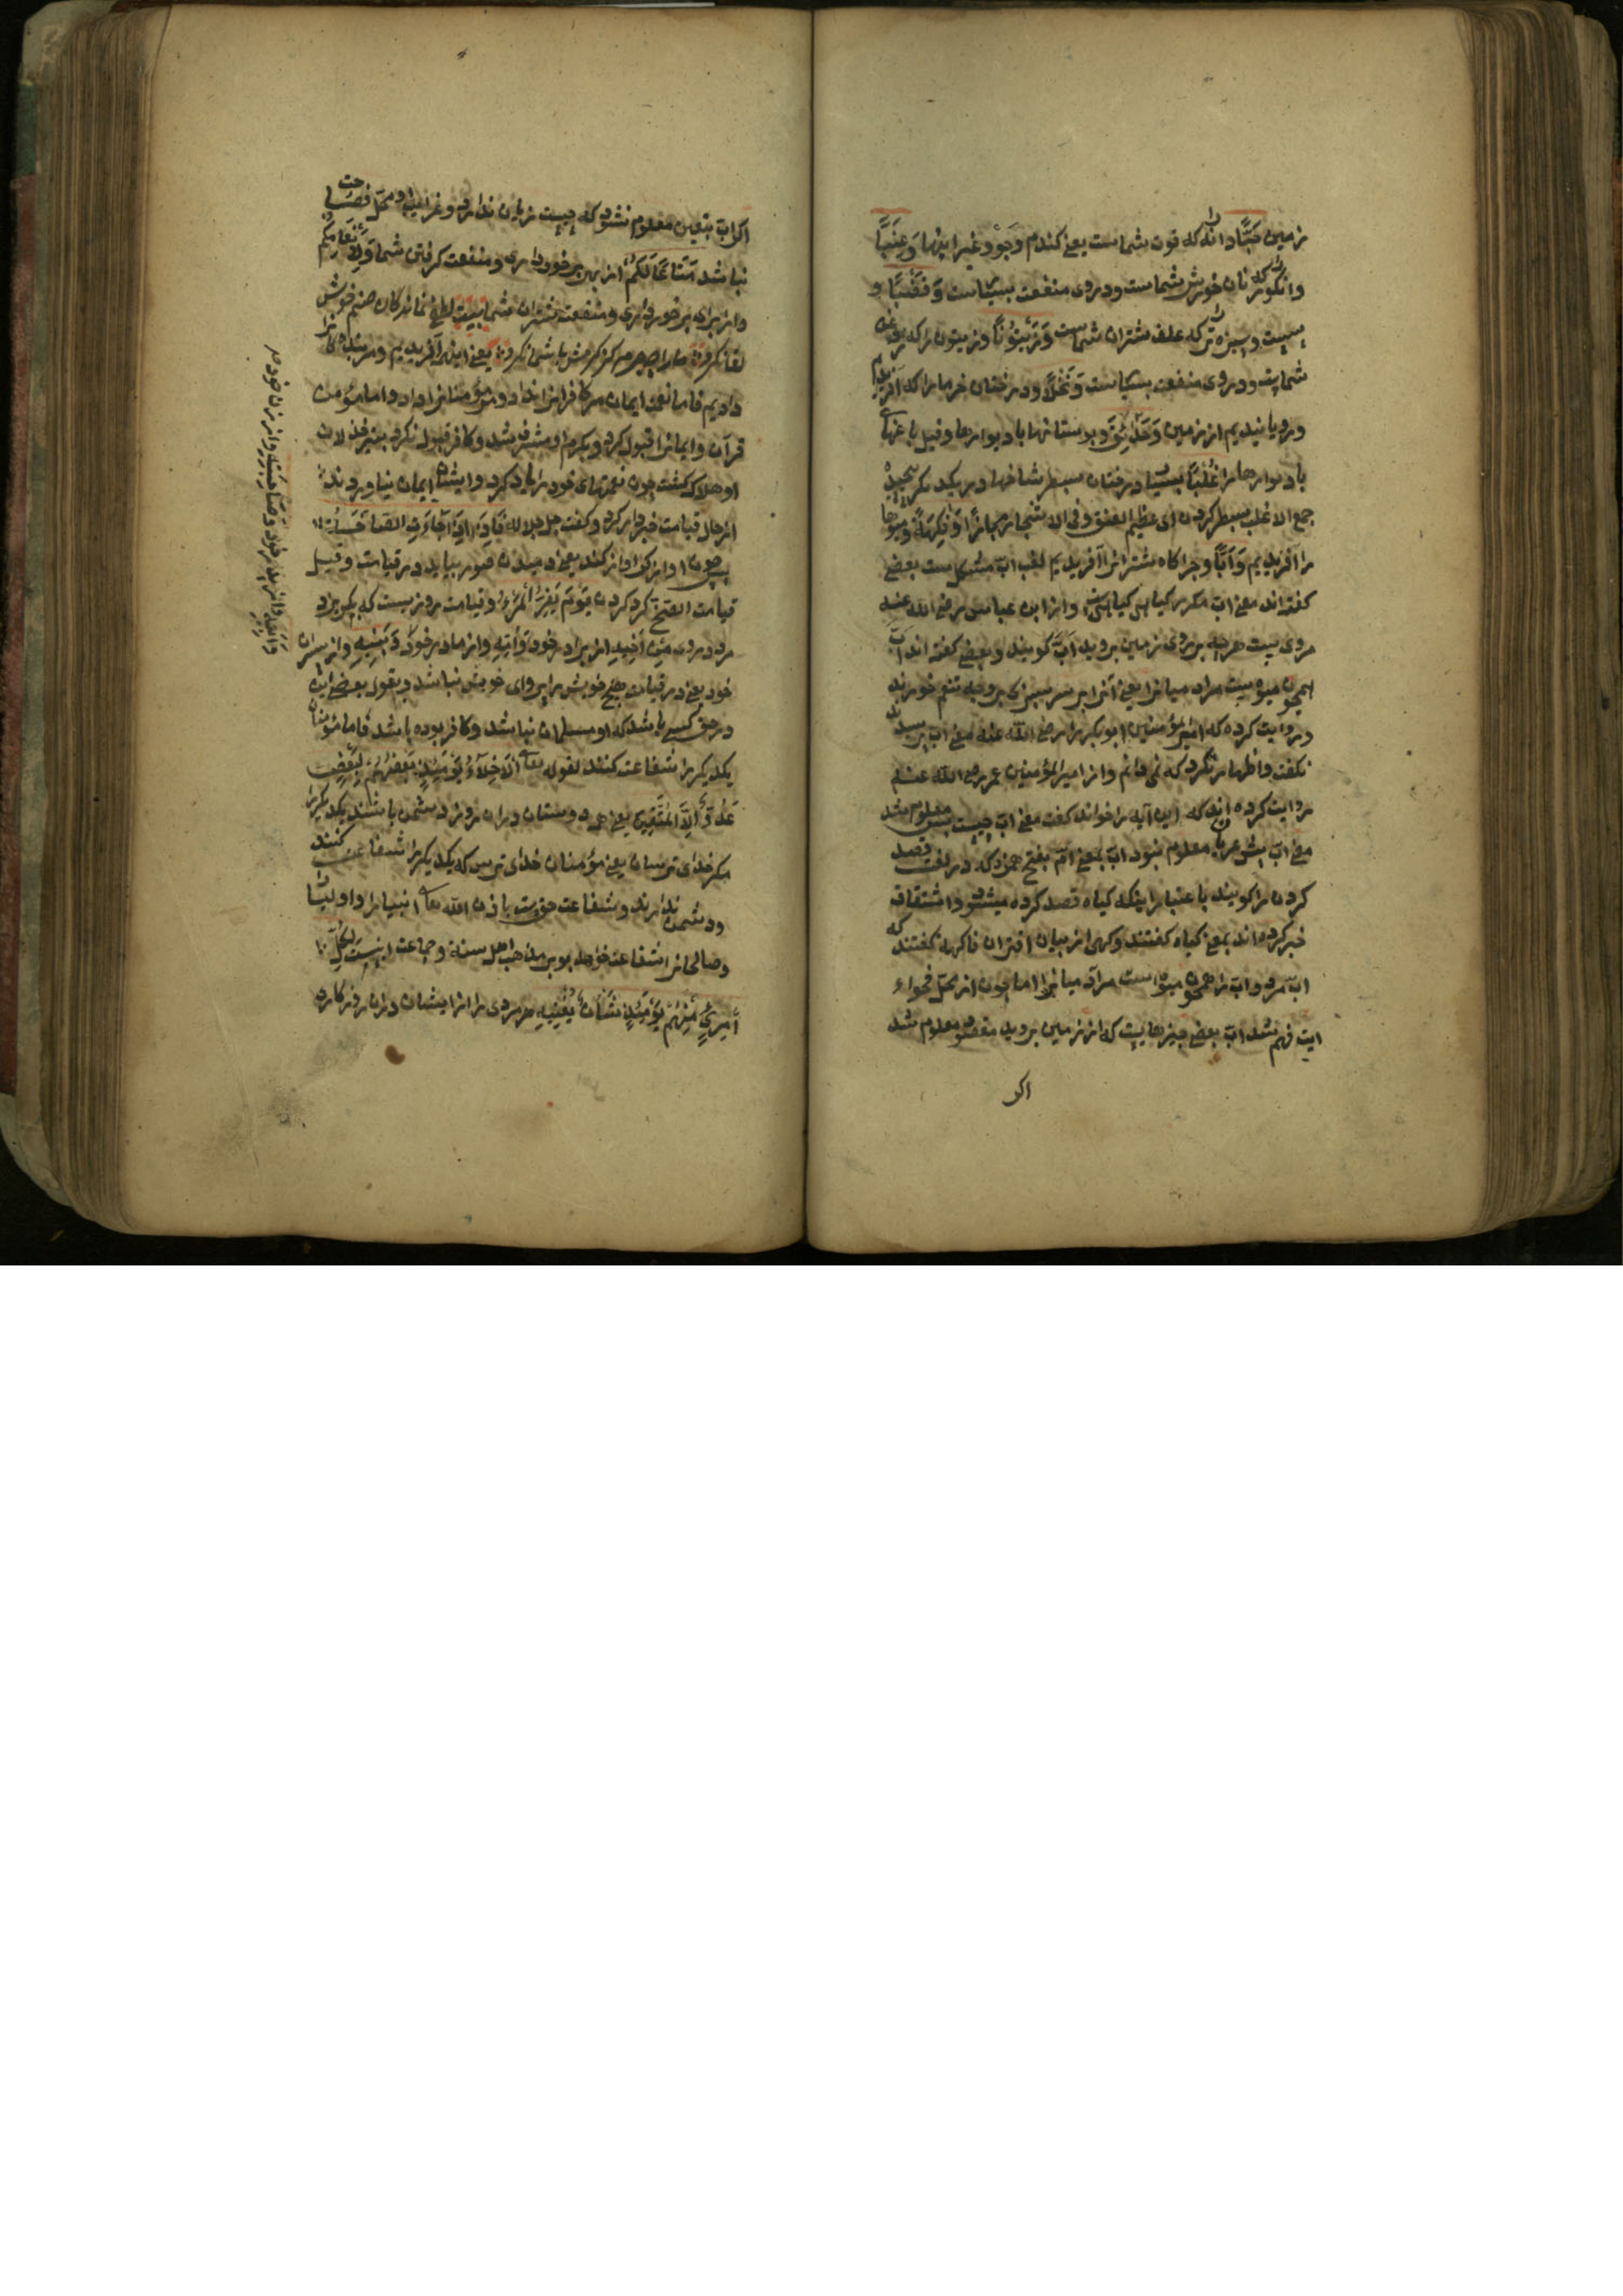 زمین حَبًّا دانه را که قوت شماست یعنی کندم و جَوْ و غیر اینها وَعِنَبًا
وانکور را که نان خورش شماست ودروی منفعت بسیاست وَقَضْبًا و
سپست و سبزه تر را که علف شتران شماست وَزَيْتُوْنًا وزیتون را که روغن
شماست ودروی منفعت بسیاست وَنَخْلًا ودرختان خرما را که آفریدیم
ورویانیدیم از زمین وَحَدَائِقَ وبوستانها با دیوارها وقیل باغهای
با دیوارها را غُلْبًا بسیار درختان سطبر شاخها در یکدیکر پیچیده
جمع الاغلب سطبر کردن ای عظیم العنق وفی الاشجار مجازًا وَفَاكِهَةً ومیوها
را آفریدیم وَاَبًّا وچراکاه شترانرا آفریدیم لفظ ابّ مشکل است بعضی
کفته اند معنی ابّ مکرر کیاهی کیاهی است واز ابن عباس رضی الله عنه
مرویست هرچه بر روی زمین بروید ابّ کویند وبعضی کفته اند ابّ
همچون میوه است مراد میانرا یعنی آنرا بر سر سبزی بر وجه تنعم خورند
وروایت کرده که امیر المؤمنین ابوبکر را رضی الله عنه معنی ابّ پرسیدند
نکفت واظهار نکرد که نمی دانم واز امیر المؤمنین عمر رضی الله عنه
روایت کرده اند که این آیه را خواند کفت معنی ابّ چیست پس معلوم شد
معنی ابّ پیش عرب معلوم نبود ابّ بمعنی امّ بفتح همزه که در لغت قصد
کردن را کویند باعتبار اینکه کیاه قصد کرده میشود واشتقاق
خبر کرده اند بمعنی کیاه کفتند وکهی از بیان اقتران فاکهه کفتند که
ابّ مرد وابّ را همچون میوه است مر آدمیانرا اما چون از محل فحواء
ایت فهم شد ابّ بعضی چیزهایست که از زمین بروید مقصود معلوم شد
اکر
اکر ابّ بتعین معلوم نشود که چیست زیان ندارد وغرایب او محل فصاحت
نباشد مَتَاعًا لَكُمْ از بهر برخورداری ومنفعت کرفتن شما وَلِاَنْعَامِكُمْ
واز برای برخورداری ومنفعت شتران شما
دادیم فاما نعمت ایمان مر کافرانرا نداد ومؤمنانرا داد واما مؤمن
قرآن وایمانرا قبول کرد وبکرم او مشرف شد وکافر قبول نکرد بتیر خذلان
او هلاک کشت چون نعمتهای خود را یاد کرد وایشان ایمان نیاوردند
از حال قیامت خبردار کرد وکفت جل جلاله فَاِذَا جَآءَتِ الصَّآخَّةُ
پس چون آواز کر آواز کند یعنی دمیدن صور بیاید در قیامت وقیل
قیامت الصخ کر کردن يَوْمَ يَفِرُّ الْمَرْءُ وقیامت روزیست که بکریزد
مرد دروی مِنْ اَخِيهِ از برادر خود وَاُمِّهِ واز مادر خود وَبَنِيهِ واز پسران
خود یعنی در قیامت هیچ خویش را پروای خویش نباشد وبقول بعضی این
در حق کسی باشد که او مسلمان نباشد وکافر بوده باشد فاما مؤمنان
یکدیکر را شفاعت کنند لقوله تعالی اَلْاَخِلَّآءُ يَوْمَئِذٍ بَعْضُهُمْ لِبَعْضٍ
عَدُوٌّ اِلَّا الْمُتَّقِينَ یعنی همه دوستان دران روز دشمن باشند یکدیکر را
مکر خدای ترسان یعنی مؤمنان خدای ترس که یکدیکر را شفاعت کنند
ودشمن ندارند وشفاعت حق است باذن الله تعالی انبیا را واولیا را
وصالحانرا شفاعت خواهد بود بر مذهب اهل سنة وجماعت اینست لِكُلِّ
امْرِئٍ مِنْهُمْ يَوْمَئِذٍ شَأْنٌ يُغْنِيهِ هر مردی را از ایشان دران روز کاره